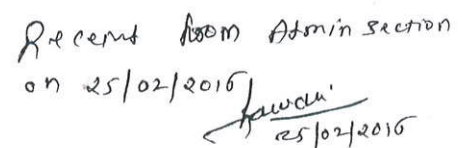 Receint from Admin section
on 25/02/2016
25/02/2016